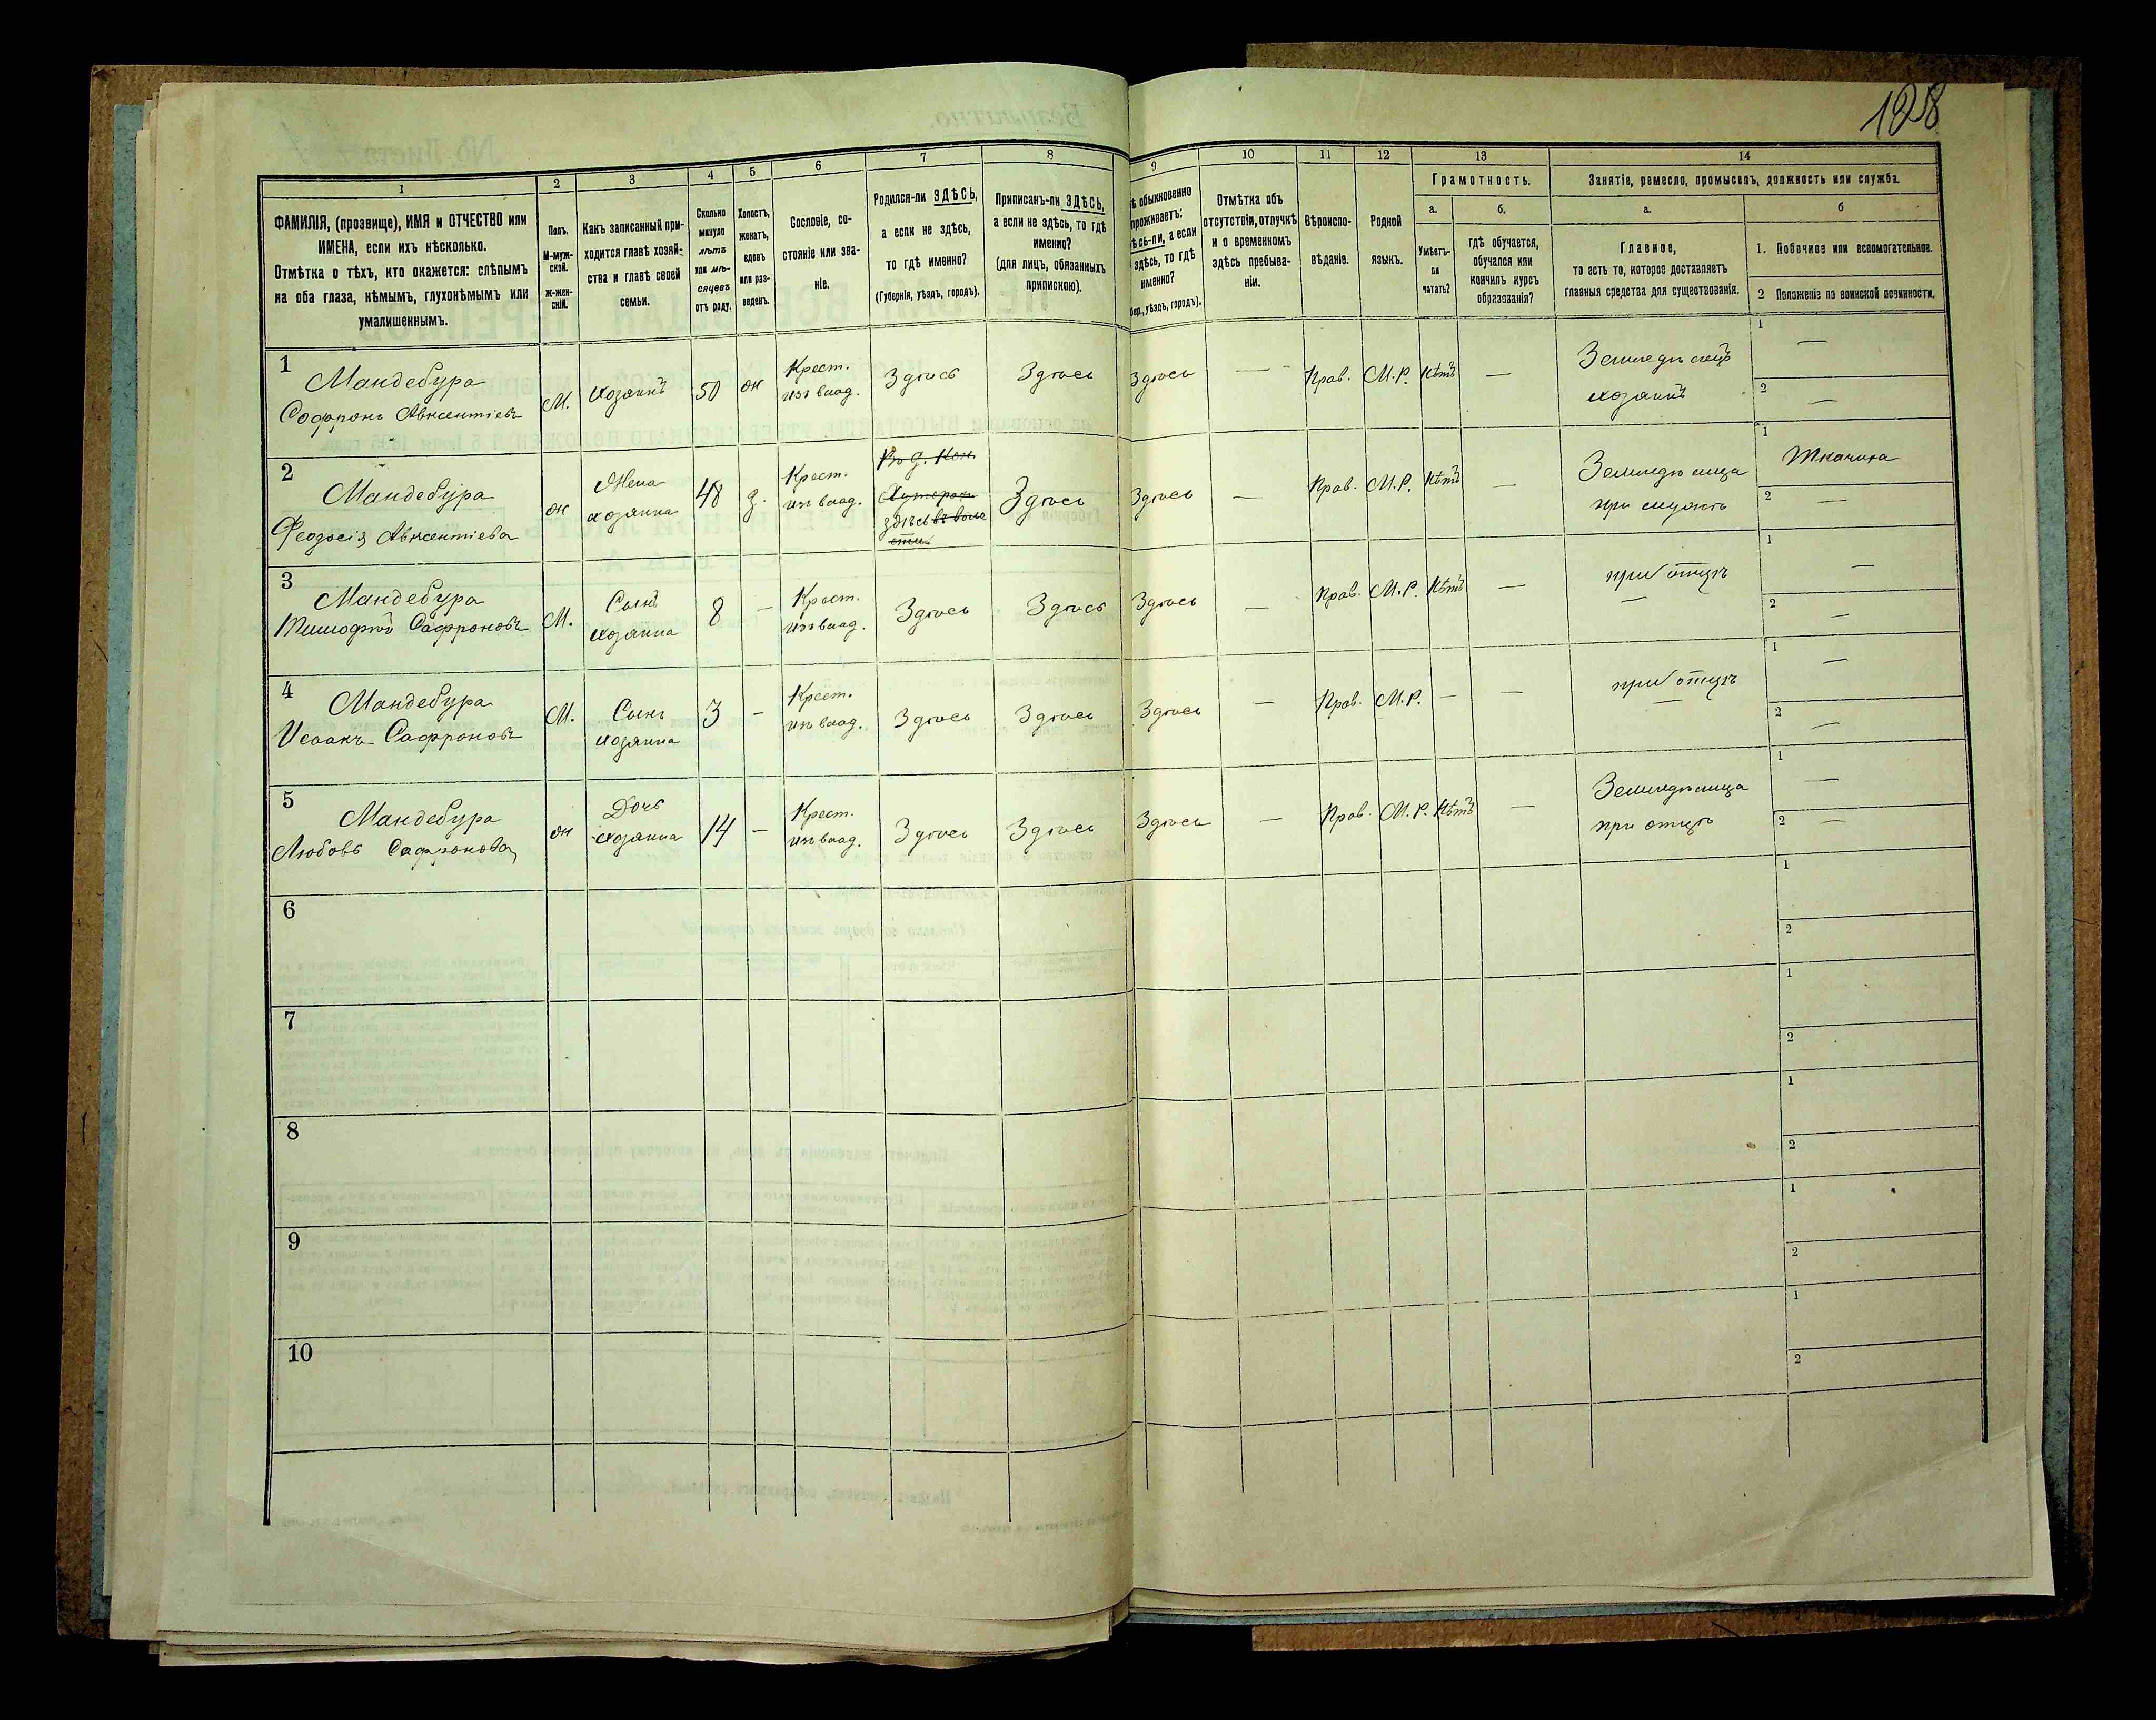 128
1 2 3 4 5 6 7 8 9 10 11 12 13 14
ФАМИЛІЯ, (прозвище), ИМЯ и ОТЧЕСТВО или
ИМЕНА, если ихъ нѣсколько.
Отмѣтка о тѣхъ, кто окажется: слѣпымъ
на оба глаза, нѣмымъ, глухонѣмымъ или
умалишеннымъ.
Полъ.
М-муж-
ской.
Ж-жен-
скій.
Какъ записанный при-
ходится главѣ хозяй-
ства и главѣ своей
семьи.
Сколько
минуло
лѣтъ
или мѣ-
сяцевъ
отъ роду.
Холостъ,
женатъ,
вдовъ
или раз-
веденъ.
Сословіе, со-
стояніе или зва-
ніе.
Родился-ли ЗДѢСЬ,
а если не здѣсь,
то гдѣ именно?
(Губернія, уѣздъ, городъ).
Приписанъ-ли ЗДѢСЬ,
а если не здѣсь, то гдѣ
именно?
(для лицъ, обязанныхъ
припискою).
ѣ обыкновенно
проживаетъ:
ѣсь-ли, а если
здѣсь, то гдѣ
именно?
бер., уѣздъ, городъ).
Отмѣтка объ
отсутствіи, отлучкѣ
и о временномъ
здѣсь пребыва-
ніи.
Вѣроиспо-
вѣданіе.
Родной
языкъ.
Грамотность.
а. б.
Умѣетъ-
ли
читать?
гдѣ обучается,
обучался или
кончилъ курсъ
образованія?
Занятіе, ремесло, промыселъ, должность или служба.
а. б
Главное,
то есть то, которое доставляетъ
главныя средства для существованія.
1. Побочное или вспомогательное.
2 Положеніе по воинской повинности.
1
Мандебура
Софронъ Авксентіевъ
М.
хозяинъ
50
ж
Крест.
изъ влад.
Здѣсь
Здѣсь
Здѣсь
—
Прав.
М.Р.
Нѣтъ
—
Земледѣлецъ
хозяинъ
1 —
2 —
2
Мандебура
Феодосія Авксентіева
ж
Жена
хозяина
48
з.
Крест.
изъ влад.
здѣсь
Здѣсь
Здѣсь
—
Прав.
М.Р.
Нѣтъ
—
Земледѣлица
при мужѣ
1 Ткачиха
2 —
3
Мандебура
Тимофей Сафроновъ
М.
Сынъ
хозяина
8
—
Крест.
изъ влад.
Здѣсь
Здѣсь
Здѣсь
—
Прав.
М.Р.
Нѣтъ
—
при отцѣ
—
1 —
2 —
4
Мандебура
Исаакъ Сафроновъ
М.
Сынъ
хозяина
3
—
Крест.
изъ влад.
Здѣсь
Здѣсь
Здѣсь
—
Прав.
М.Р.
—
—
при отцѣ
—
1 —
2 —
5
Мандебура
Любовь Сафронова
ж
Дочь
хозяина
14
—
Крест.
изъ влад.
Здѣсь
Здѣсь
Здѣсь
—
Прав.
М.Р.
Нѣтъ
—
Земледѣлица
при отцѣ
1 —
2 —
6
1
2
7
1
2
8
1
2
9
1
2
10
1
2